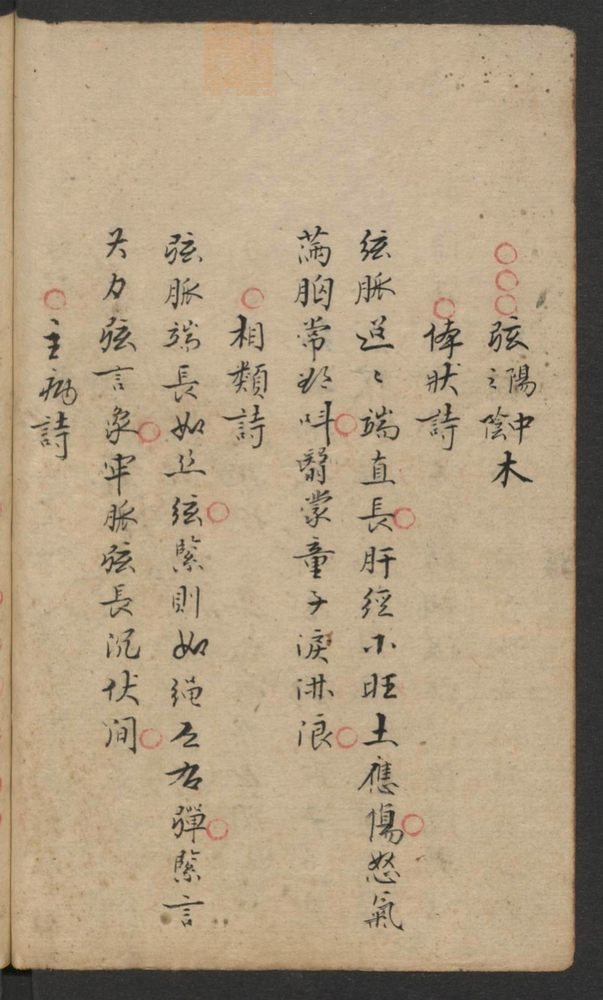 弦陽中之陰木
体状詩
弦脈迢〻端直長肝經木旺土應傷怒氣
滿胸常欲叫翳蒙童子淚淋浪
相類詩
弦脈端長如丝弦緊則如绳左右彈緊言
其力弦言象牢脈弦長沉伏间
主病詩